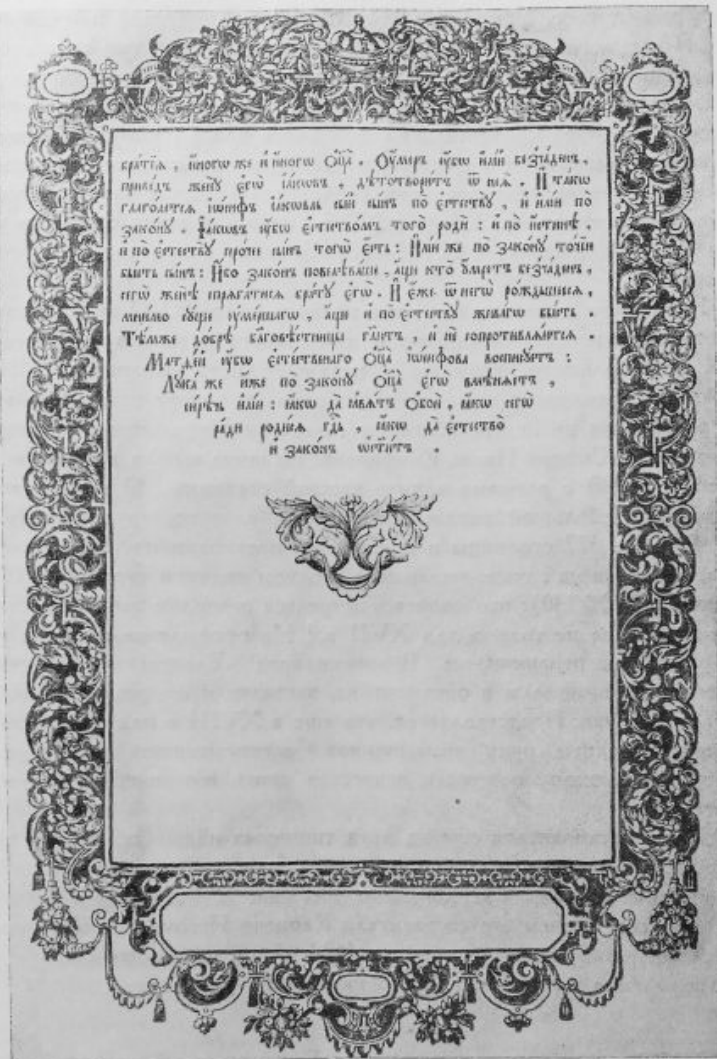 бра́тїѧ, и҆но́гѡ же и҆ и҆но́гѡ Ѻ҆ц҃а̀. Оу҆ме́ръ оу҆́бѡ и҆лі́и безча́денъ,
приве́дъ женꙋ̀ є҆гѡ̀ і҆а́кѡвъ, дѣтотвори́тъ ѿ неѧ̀. И҆ та́кѡ
глаго́летсѧ і҆ѡ́сифъ і҆а́кѡвль сы́й сы́нъ по є҆стествꙋ̀, и҆ и҆лі́и по
зако́нꙋ. І҆а́кѡвъ оу҆́бѡ є҆стество́мъ того̀ родѝ: и҆ по и҆́стинѣ,
и҆ по є҆стествꙋ̀ про́чее сы́нъ тогѡ̀ є҆́сть: И҆лі́и же по зако́нꙋ то́чїю
бы́сть сы́нъ: И҆́бо зако́нъ повелѣва́ше, а҆́ще кто̀ ᲂу҆́мретъ безча́денъ,
сегѡ̀ женѣ̀ спрѧга́тисѧ бра́тꙋ є҆гѡ̀. И҆ є҆́же ѿ негѡ̀ рожда́шеесѧ,
мни́мо сꙋ́ще оу҆ме́ршагѡ, а҆́ще и҆ по є҆стествꙋ̀ жива́гѡ бы́сть.
Тѣ́мже до́брѣ бл҃говѣ́стницы гл҃ютъ, и҆ не сопротивлѧ́ютсѧ.
Матѳе́й оу҆́бѡ є҆сте́ственнаго Ѻ҆ц҃а̀ і҆ѡ́сифова воспису́етъ:
Лꙋка́ же и҆́же по зако́нꙋ Ѻ҆ц҃а̀ є҆гѡ̀ вмѣнѧ́етъ,
си́рѣчь и҆лі́и: ꙗ҆́кѡ да ꙗ҆вѧ́тъ Ѻ҆бо́и, ꙗ҆́кѡ сегѡ̀
ра́ди роди́сѧ гд҇ь, ꙗ҆́кѡ да є҆стество̀
и҆ зако́нъ ѡ҆ст҃и́тъ.